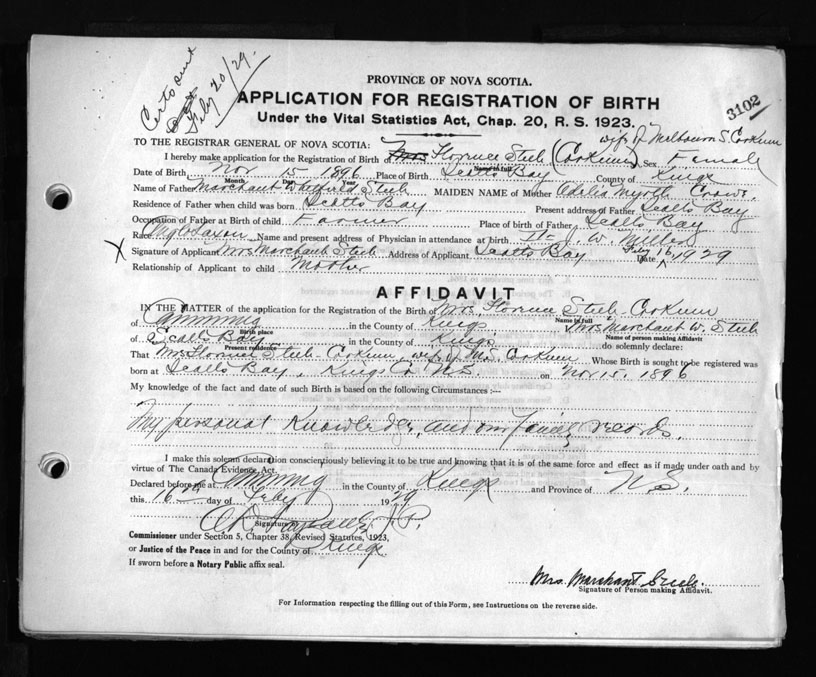 Cert sent
Feby 20/29.
PROVINCE OF NOVA SCOTIA.
3102
APPLICATION FOR REGISTRATION OF BIRTH
Under the Vital Statistics Act, Chap. 20, R. S. 1923.
wife of Melbourn S. Corkum
TO THE REGISTRAR GENERAL OF NOVA SCOTIA:
I hereby make application for the Registration of Birth of Mrs Florence Steele (Corkum) Sex Female
Name in full
Date of Birth Nov 15 1896 Place of Birth Scotts Bay County of Kings
Month Day Year
Name of Father Marchant Whitfield Steele MAIDEN NAME of Mother Odelia Myrtle
Residence of Father when child was born Scotts Bay Present address of Father Scotts Bay
Occupation of Father at Birth of child Farmer Place of birth of Father Scotts Bay
Race Anglo Saxon Name and present address of Physician in attendance at birth W. Miller
X Signature of Applicant Mrs Marchant Steele Address of Applicant Scotts Bay Date Feby 16, 1929
Relationship of Applicant to child Mother
AFFIDAVIT
IN THE MATTER of the application for the Registration of the Birth of Mrs Florence Steele Corkum
Name in full
of Canning in the County of Kings I Mrs Marchant W. Steele
Birth place Name of person making Affidavit
of Scotts Bay in the County of Kings do solemnly declare:
Present residence
That Mrs Florence Steele Corkum, wife of M. S. Corkum Whose Birth is sought to be registered was
born at Scotts Bay, Kings Co N.S. on Nov 15, 1896
My knowledge of the fact and date of such Birth is based on the following Circumstances :—
My personal Knowledge, and our family records.
I make this solemn declaration conscientiously believing it to be true and knowing that it is of the same force and effect as if made under oath and by
virtue of The Canada Evidence Act.
Declared before me at Canning in the County of Kings and Province of N.S.
this 16th day of Feby 1929
J.P.
Signature
Commissioner under Section 5, Chapter 38, Revised Statutes, 1923,
or Justice of the Peace in and for the County of Kings
If sworn before a Notary Public affix seal.
Mrs. Marchant Steele.
Signature of Person making Affidavit.
For Information respecting the filling out of this Form, see Instructions on the reverse side.